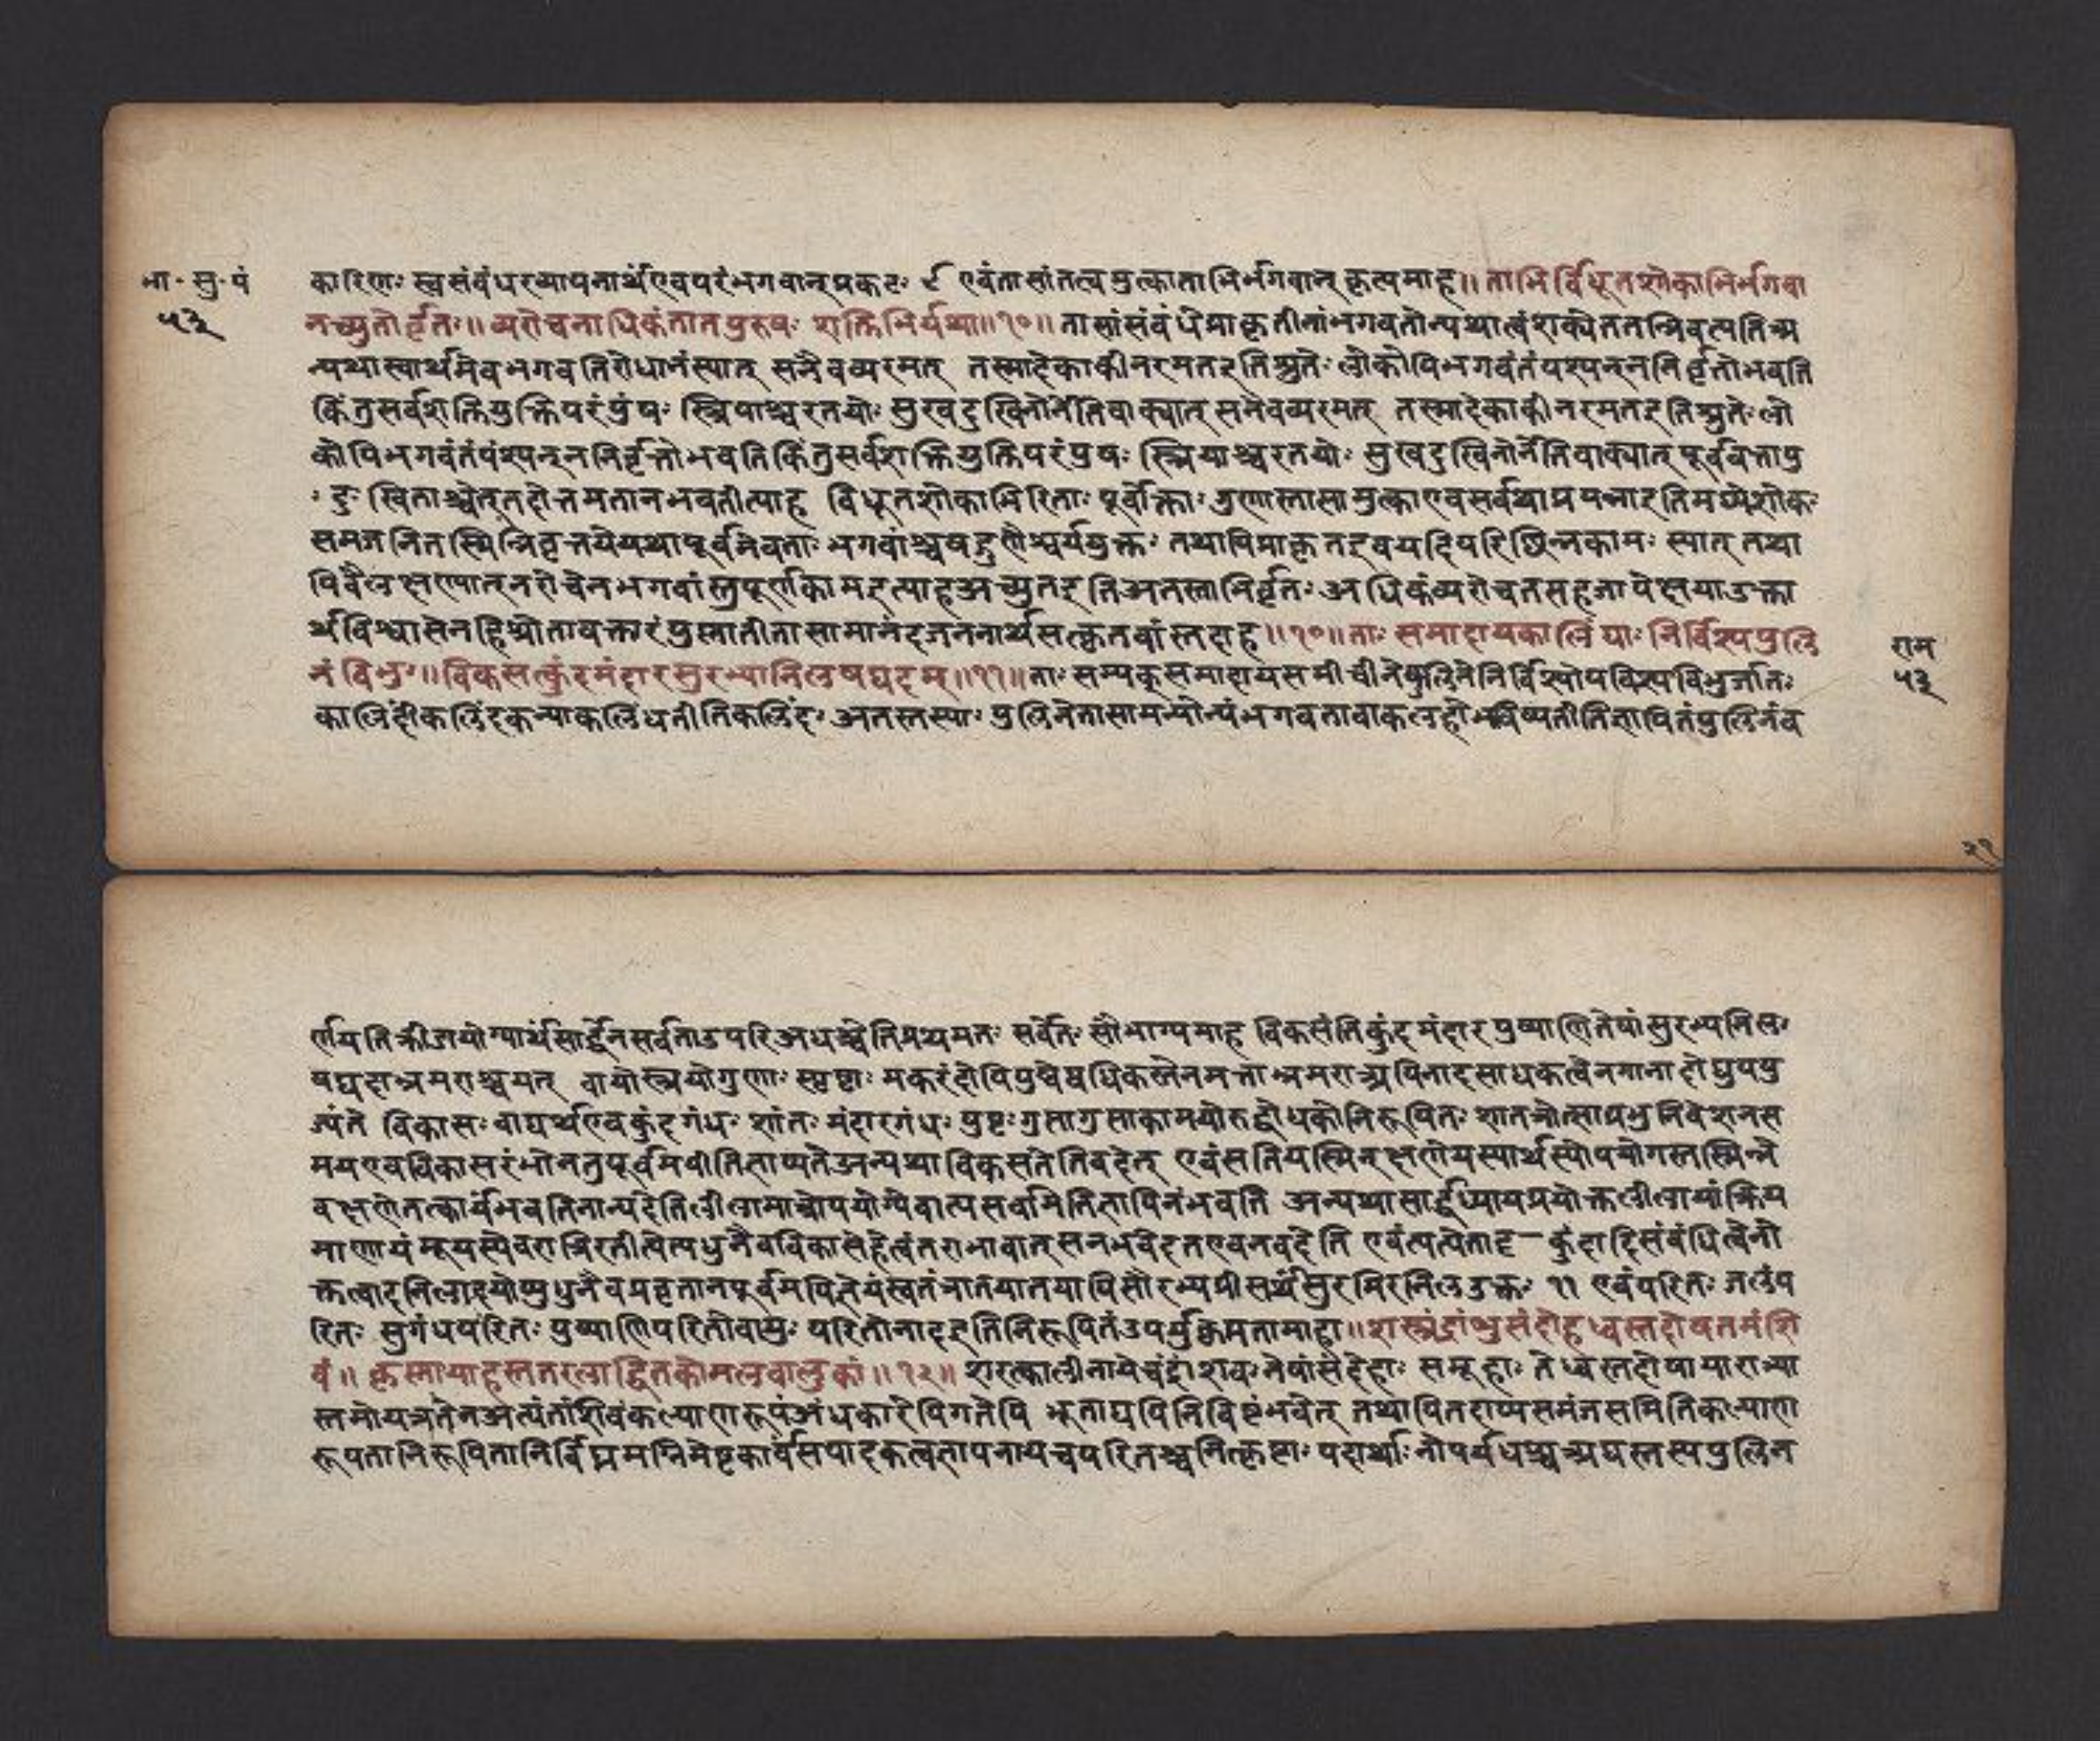 भा॰ सु॰ पं
५३
कारिणः स्वसंबंधख्यापनार्थएवपरंभगवान्प्रकटः ९ एवंतासांतत्वमुत्काताभिर्भगवान् कृत्यमाह॥ ताभिर्विधूतशोकाभिर्भगवा
नच्युतोर्वृतः॥ व्यरोचनाधिकंतातपुरुषः शक्तिभिर्यथा॥१०॥ तासांसंबंधेप्राकृतीनांभगवतोन्यथात्वंशक्येततन्निवत्यतिअ
न्यथास्वार्थमेवभगवतिरोधानंस्यात् सनैवव्यरमत् तस्मादेकाकीनरमतइतिश्रुतेः लोकोपिभगवंतंपश्यन्ननिर्वृत्तोभवति
किंतुसर्वशक्तियुक्तिपरंपुंषः स्त्रियाश्चरतयोः सुखदुखिनोर्नेतिवाक्यात् समेवव्यरमत् तस्मादेकाकीनरमतइतिश्रुतेः लो
कोपिभगवंतंपंश्यन्ननिर्वृत्तोभवतिकिंतुसर्वशक्तियुक्तिपरंपुषः स्त्रियाश्चरतयोः सुखदुखिनोर्नेतिवाक्यात् पूर्ववत्तापु
ः दुः खिताश्चेत्तहोत्तमतानभवतीत्याह विधूतशोकाभिरिताः पूर्वोक्ताः गुणास्तासामुत्काएवसर्वथाप्रपन्नाइतिमध्येशोकः
समजनितस्मिन्निवृत्तयेयथापूर्वमेवताः भगवांश्चषड्गुणैश्वर्ययुक्तः तथापिप्राकृतइवयदिपरिछिन्नकामः स्यात् तथा
पिवैलक्षण्यात्नरोचेनभगवांस्तुपूर्णकामइत्याहअच्युतइतिअतस्ताभिर्वृतः अधिकंव्यरोचतसहजापेक्षयाउक्ता
र्थविश्वासेनहिश्रोतावक्तारंपुस्नातीतासामानंदजननार्थसत्कृतवांस्तदाह॥१०॥ ताः समादायकालिंद्याः निर्विश्यपुलि
नं विभुः॥ विकसत्कुंदमंदारसुरभ्यानिलषट्पदम्॥११॥ ताः सम्यक्समादायसमीचीनेपुलिनेनिर्विश्योपविश्यविभुर्जातः
कालिंदीकलिंदकन्याकलिंधतीतिकलिंदः अतस्तस्याः पुलिनेतासामन्योन्यंभगवतावाकलहोभविष्यतीतिज्ञापितंपुलिनंव
राम
५३
२१
र्णयतिक्रीडायोग्यार्थसार्द्धेनसर्वताउपरिअधश्चेतिप्रथमतः सर्वेतः सौभाग्यमाह विकसंतिकुंदमंदारपुष्पाणितेषांसुरभ्यनिलः
षट्पदाभ्रमराश्चयत् वायोस्त्रयोगुणाः स्पृष्टाः मकरंदोपिपुष्पेष्वधिकस्तेनमत्ताभ्रमराअपिनादसाधकत्वेनगानादोद्युपयु
ज्यंते विकासः वाद्यर्थएवकुंदगंधः शांतः मंदारगंधः पुष्टः गुप्तागुप्ताकामयोरुद्बोधकोनिरूपितः शातज्योत्स्नाप्रभुनिवेशनस
मयएवविकासरंभोनतुपूर्वमपीतिज्ञाप्यतेअन्यथाविकसंतेतिवदेत् एवंसतियस्मिन्क्षणेयस्यार्थस्योपयोगस्तस्मिन्ने
वक्षणेतत्कार्यभवतिनान्यदेतिलीलामात्रोपयोग्येवात्यसर्वामितिज्ञापितंभवति अन्यथासार्द्धध्यायप्रयोक्तलीलायांक्रिय
माणायंभूयस्येवरात्रिरतीत्येत्यधुनैवविकासेहेत्वंतराभावात् सनभवेदतएवनवदेति एवंत्यत्येतादृ— कुंदादिसंबंधित्वेनो
क्तत्वादनिलादयोप्युधुनैवप्रवृतानपूर्वमपितेयंस्वतंत्रातयातयापिसौरभ्यप्रीसर्थंसुरभिरनिलउक्तः ११ एवंपरितः जलंप
रितः सुगंधपरितः पुष्पाणिपरितोवायुः परितोनादइतिनिरूपितंउपर्युत्कृमतामाहा॥ शरच्चंद्रांशुसंदोहध्वस्तदोषतमंशि
वं॥ कृस्मायाहस्ततरलाद्धितकोमलवालुकां॥१२॥ शरत्कालीनायेचंद्रांशवः तेषांसंदेहाः समूहाः तेध्वस्तदोषायारात्र्या
स्तमोयत्रतेनअत्यंतांशिवंकल्याणरूपंअंधकारेपिगतेपि भूताद्यपिनिविष्टंभवेत् तथापितदाप्यसमंजसमितिकल्याण
रूपतानिरूपितानिर्विघ्नमग्निमेष्टकार्यसंपादकत्वज्ञापनायचपरितश्चनित्कृष्टाः पदार्थाः नोपर्यधश्चअधस्तस्यपुलिन